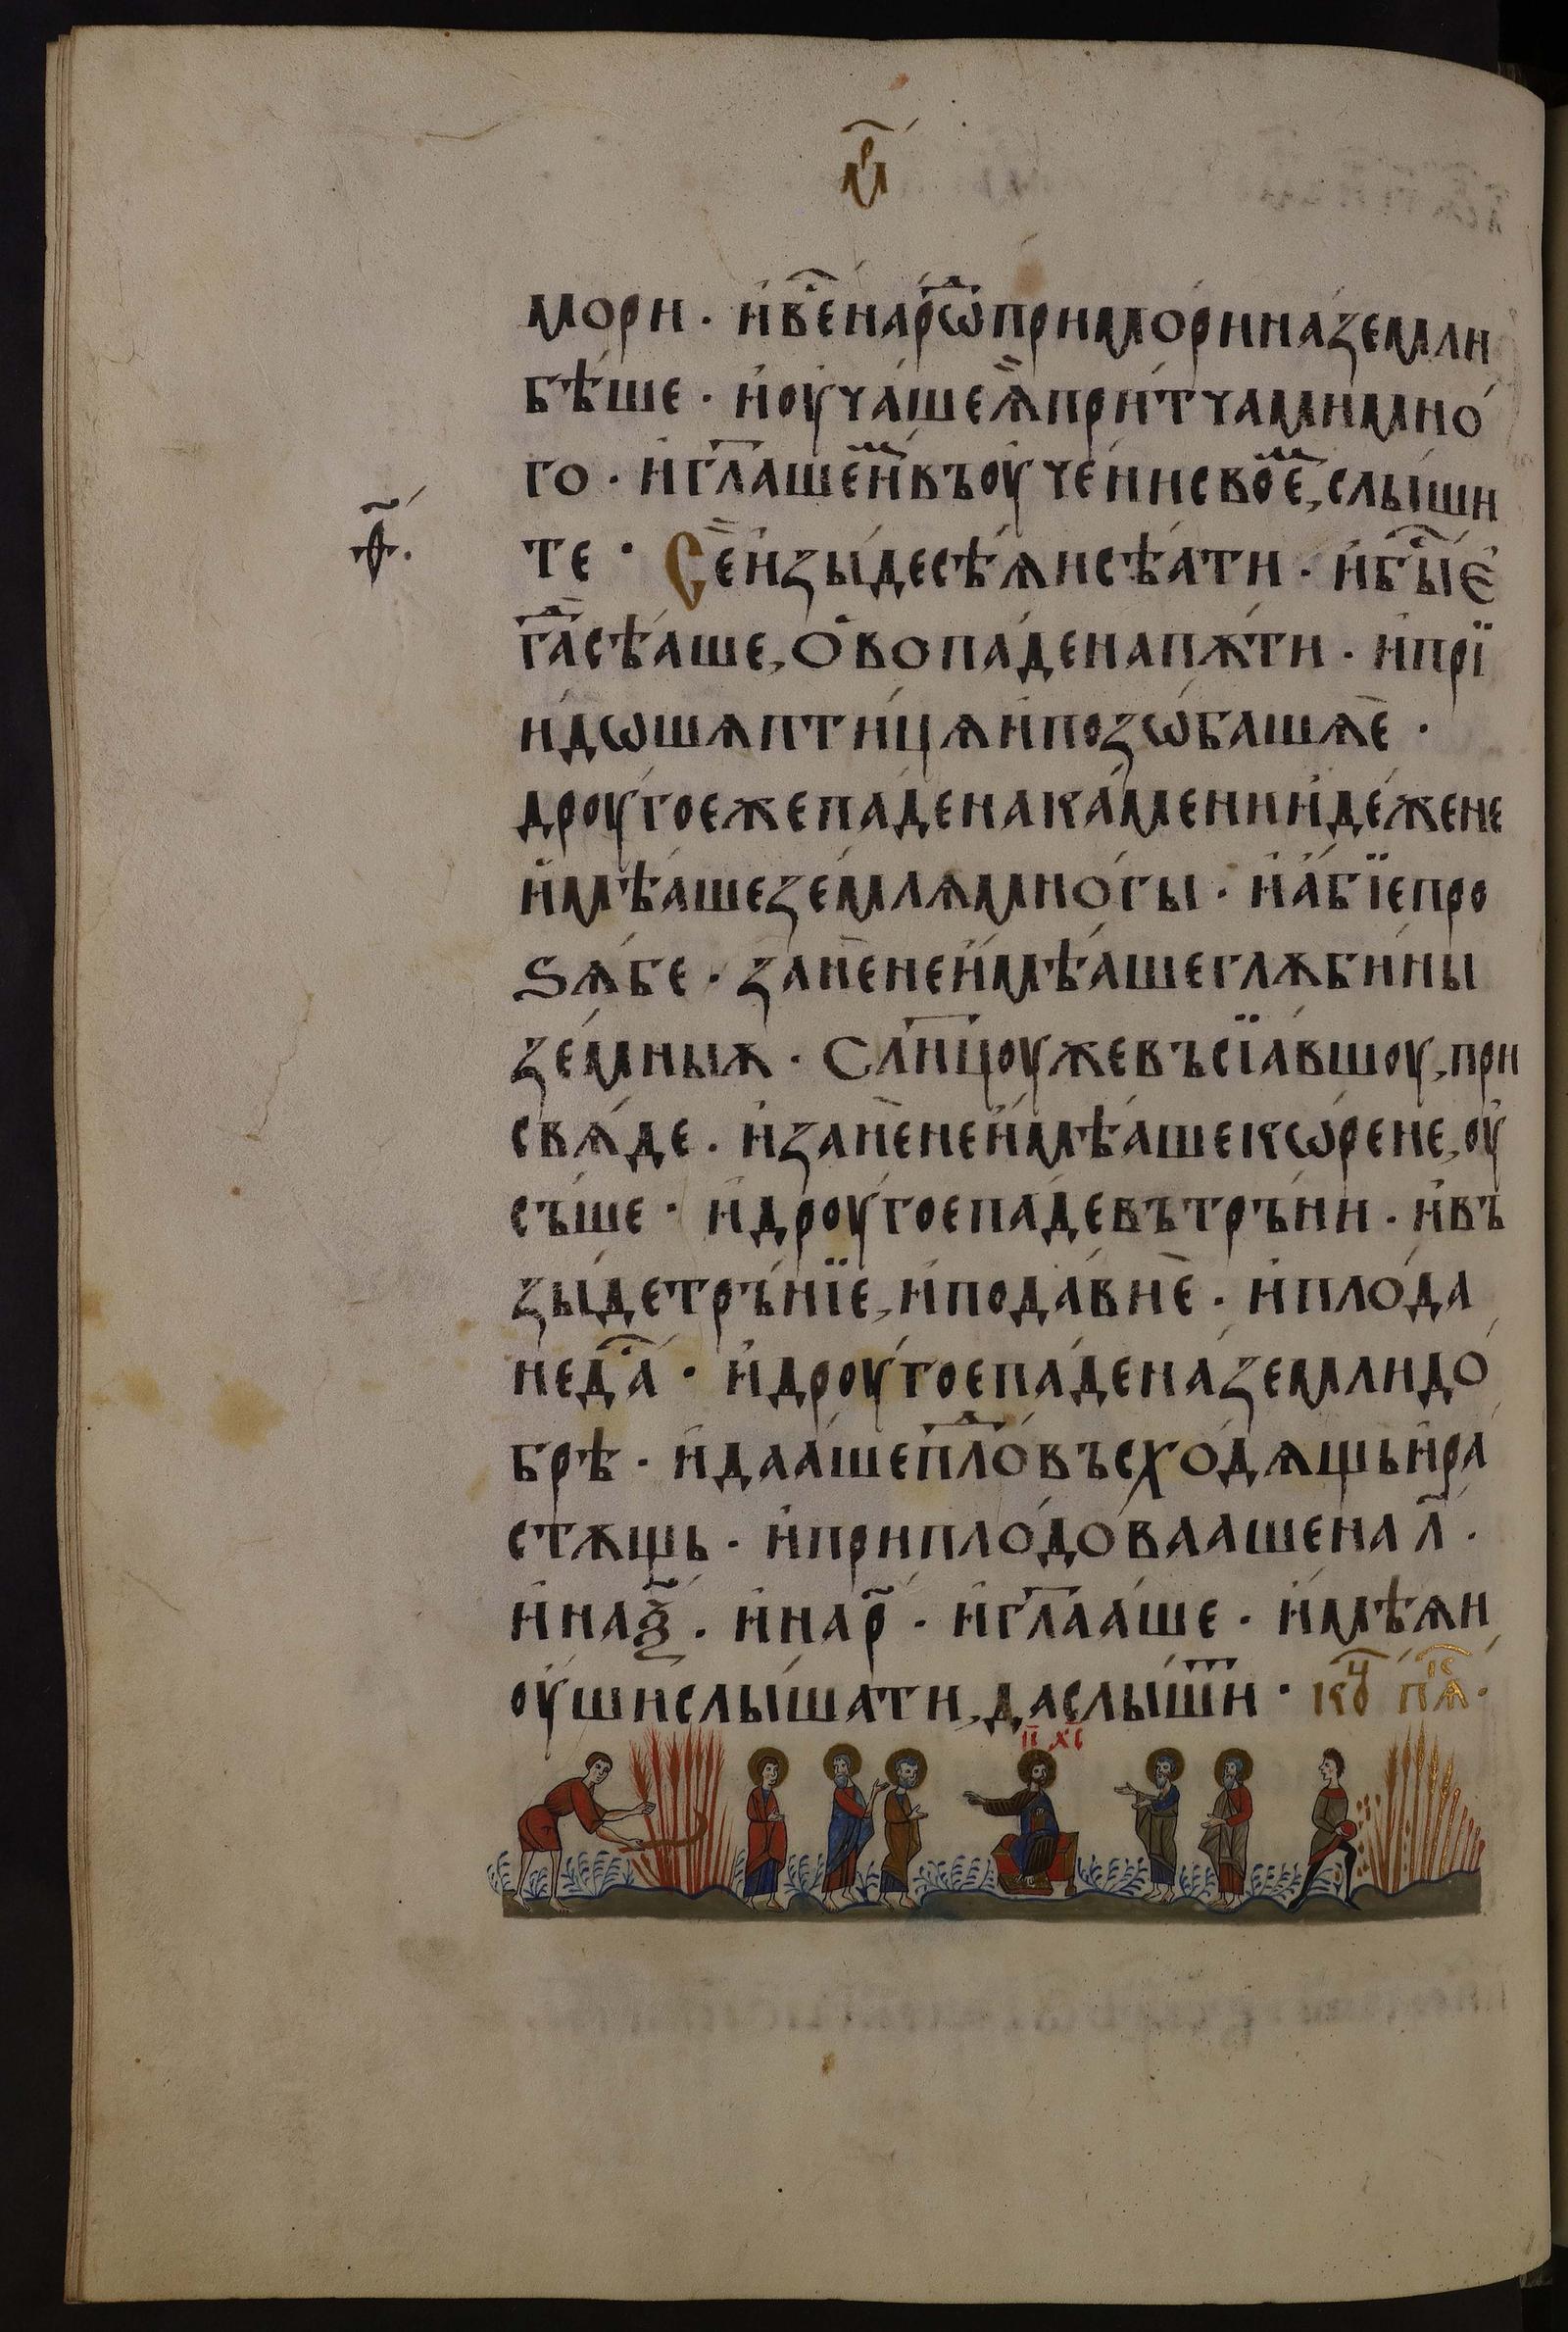 м҃р
мори · и҆вꙿсе́наро́дꙿпримо́рина́земли
бѣ́ше · и҆оу҆ча́шеѧ҆̀при́тчамимно́
го · и҆гл҃аше́и҆мꙿвъоу҆че́нисвое́мꙿ, слы́ши
те · Се́и҆зы́десѣ́ѧисѣ́ати · и҆бы́е҆
гд҃асѣ́аше, О҆́вопа́денапѫ́ти · и҆прїи
и́дѡшѧпти́цѧи҆позѡ́башѧѐ ·
дроу́гоежепа́денака́мениидѣ́жене
и҆мѣ́ашезе́млѧмно́гы · и҆а́бїепро
ѕѧ́бе · зане́неи҆мѣ́ашеглѫби́ны
зе́мныѫ · Сл҃нцоужевъсїа́вшоу, при
свѧ́де · и҆зане́неи҆мѣ́ашекѡ́рене, оу҆
съ́ше · и҆дроу́гоепа́девътръ́ни · и҆въ
зы́детръ́нїе, и҆пода́виѐ · и҆пло́да
неда́ · и҆дроу́гоепа́дена́землидо́
брѣ · и҆дааше́пло́дꙿвъсхо́дѧщьи҆ра
стѫщь · и҆приплодо́ваашена л҃ ·
и҆на ѯ҃ · и҆на р҃ · и҆гл҃ааше · и҆мѣ́ѧи
оу҆́шислы́шати, даслы́шитꙿ ·